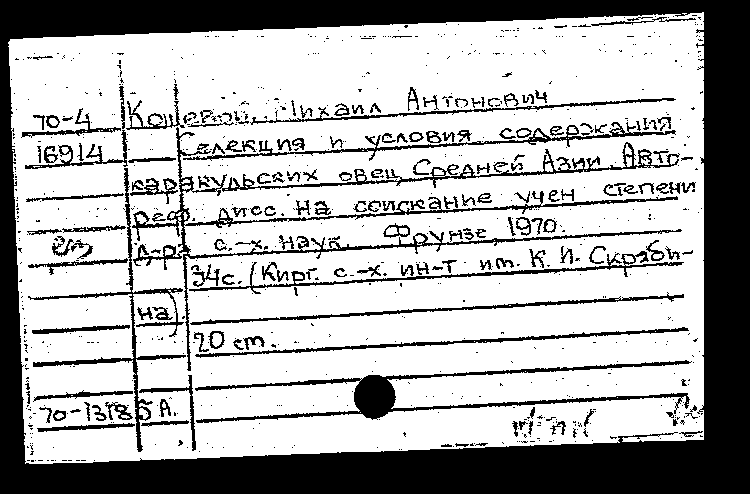 70-4 Кошевой, Михаил Антонович
16914 Селекция и условия содержания
каракульских овец Средней Азии. Авто-
реф. дисс. на соискание учен степени
д-ра с.-х. наук. Фрунзе, 1970.
34с. (Кирг. с.-х. ин-т им. К. И. Скряби-
на).
20 cm.
70-13185 А.